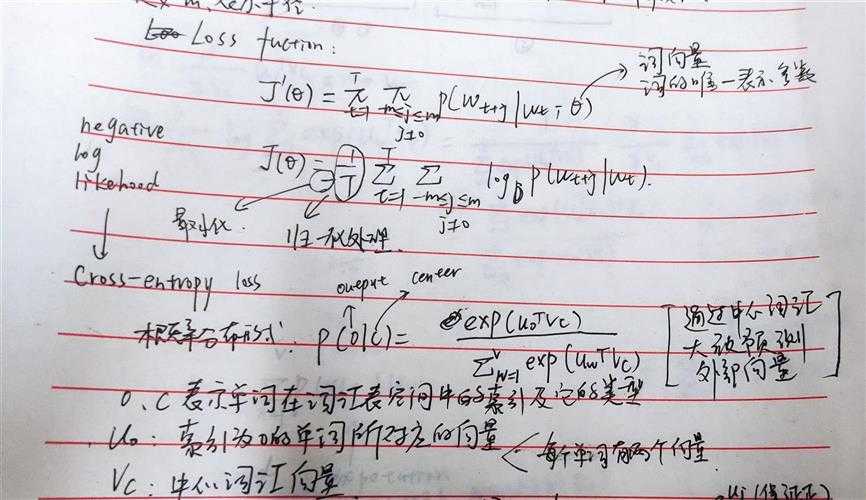 m 表示半径.
Loss fuction:
J'(θ) = π t=1 T π -m≤j≤m j≠0 p(w_{t+j} | w_t ; θ)
词向量
词的唯一表示参数
negative
log
likehood
J(θ) = - 1/T Σ t=1 T Σ -m≤j≤m j≠0 log p(w_{t+j} | w_t).
归一化处理.
Cross-entropy loss
output center
概率分布形式: p(o|c) = exp(u_o^T v_c) / Σ_{w=1}^{v} exp(u_w^T v_c)
[通过中心词汇
大致预测
外部向量]
o、c 表示单词在词汇表空间中的索引及它的类型
u_o: 索引为o的单词所对应的向量
< 每个单词有两个向量.
V_c: 中心词汇向量